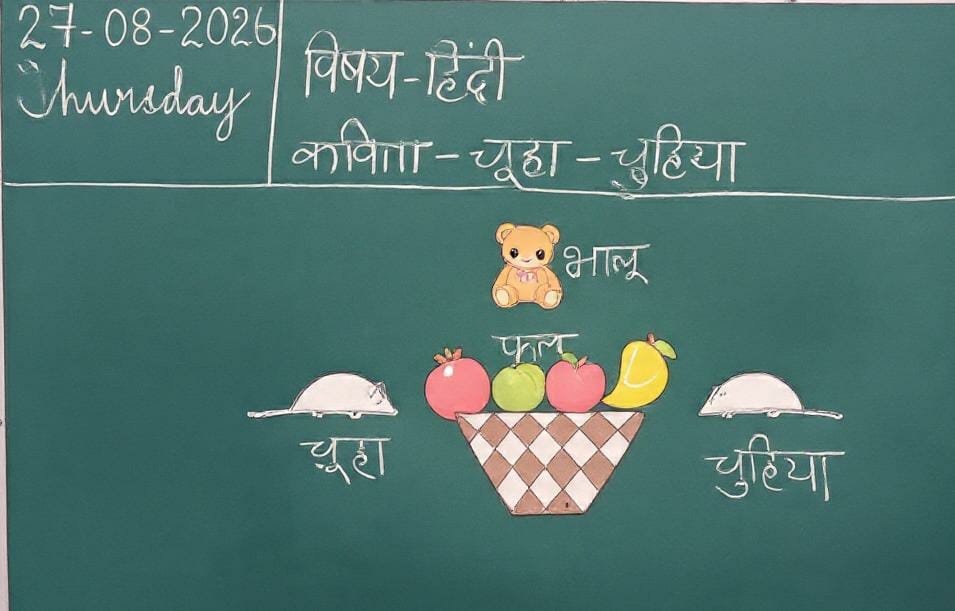 27-08-2026
Thursday
विषय-हिंदी
कविता - चूहा - चुहिया
भालू
फल
चूहा
चुहिया